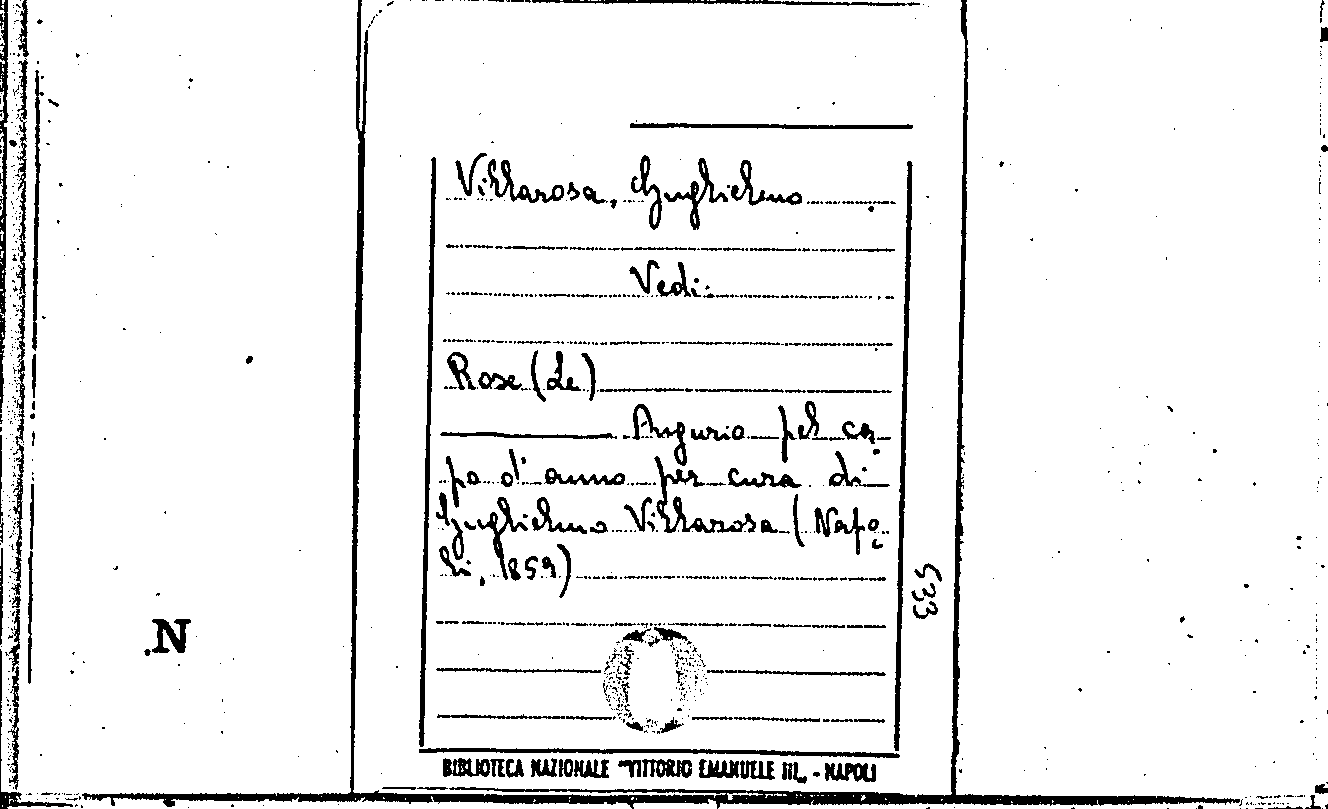 Villarosa, Guglielmo
Vedi:
Rose (Le)
Augurio pel ca-
po d'anno per cura di
Guglielmo Villarosa (Napo-
li, 1859)
533
N
BIBLIOTECA NAZIONALE "VITTORIO EMANUELE III" - NAPOLI